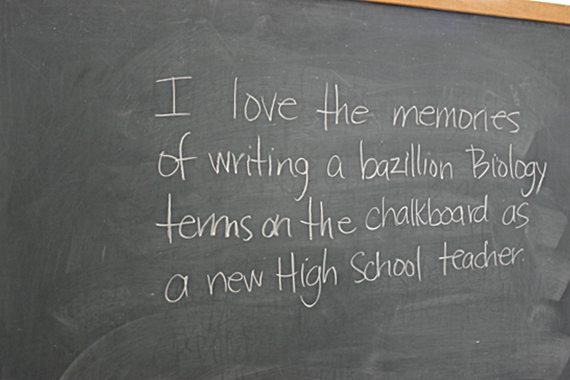 I love the memories
of writing a bazillion Biology
terms on the chalkboard as
a new High School teacher.